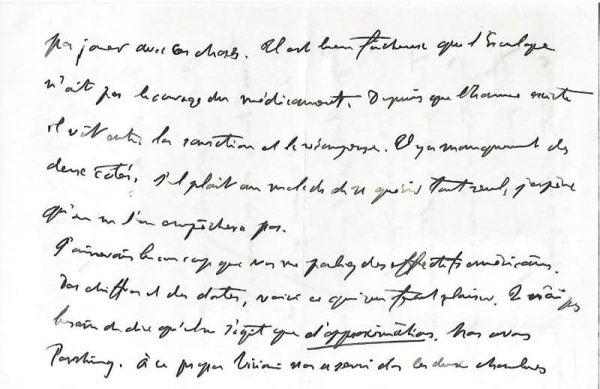 pas jouer avec les choses. Il est bien fâcheux que l'Esculape
n'ait pas le courage du médicament. Depuis que l'homme existe
il vit entre la sanction et la récompense. Il y a manquement des
deux côtés. S'il plaît au malade de guérir tout seul, j'espère
qu'on ne l'en empêchera pas.
J'aimerais beaucoup que vous me parliez des effectifs américains.
Des chiffres et des dates, voici ce qui me ferait plaisir. Je n'ai pas
besoin de dire qu'il ne s'agit que d'approximations. Vous avez
Pershing. À ce propos Viviani nous a servi les deux chambres